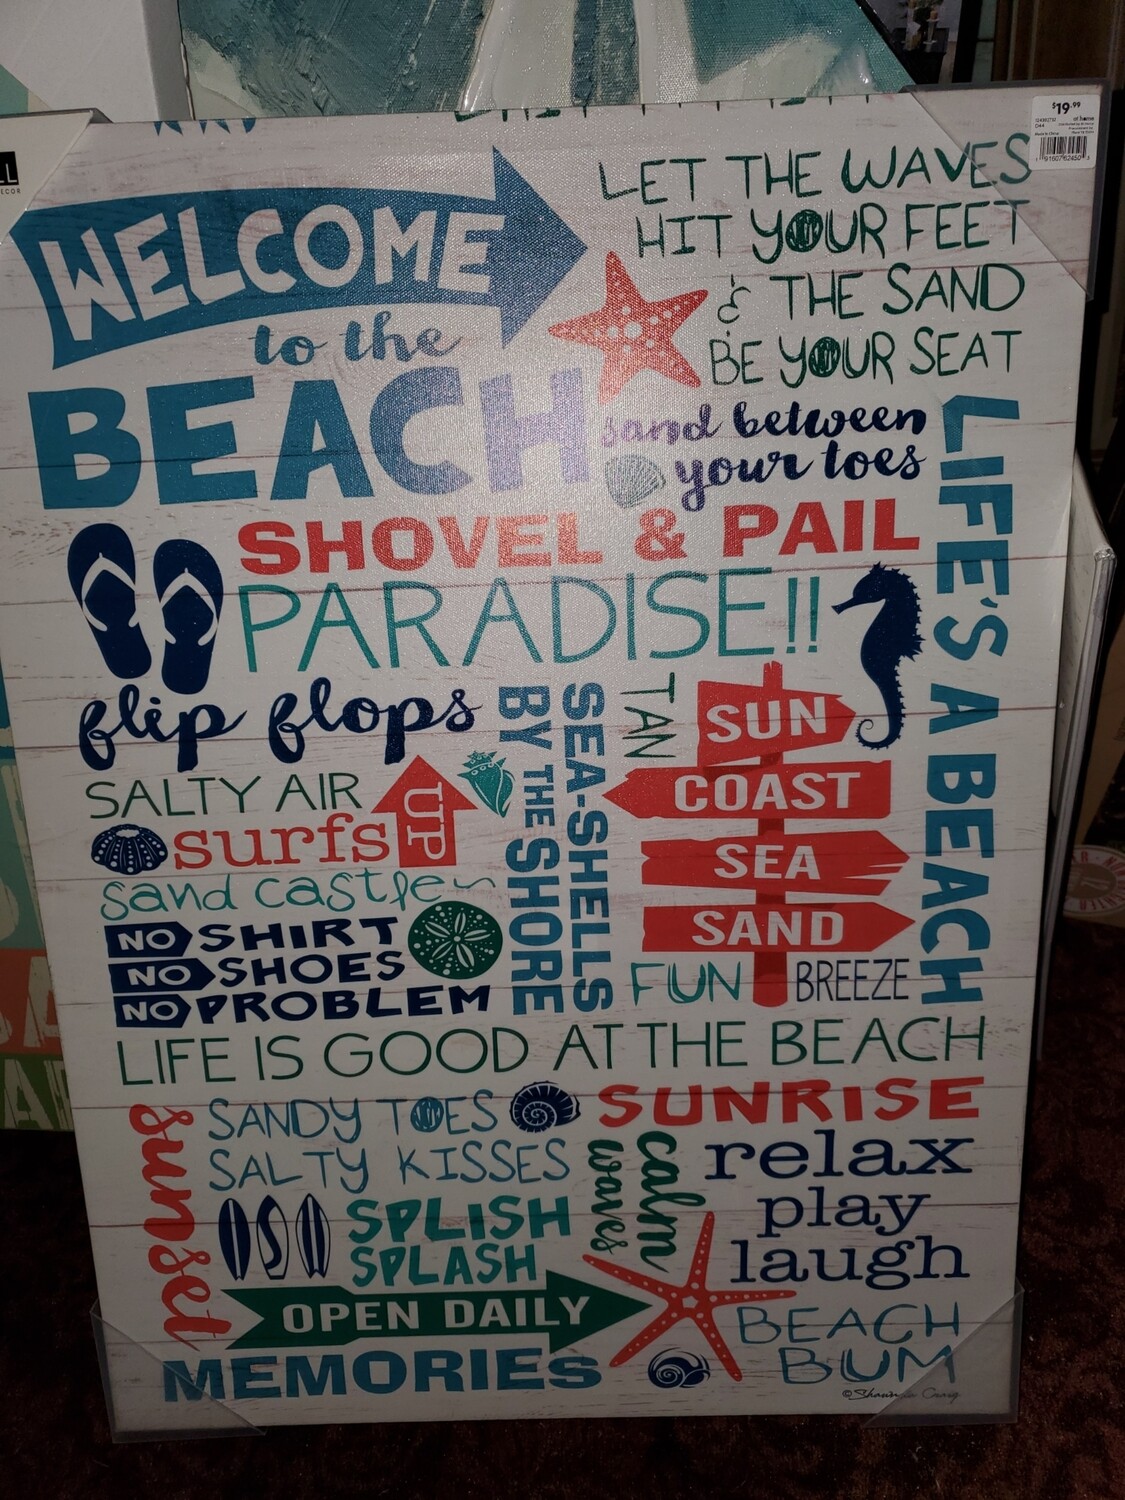 WELCOME
to the
BEACH
LET THE WAVES
HIT YOUR FEET
& THE SAND
BE YOUR SEAT
sand between
your toes
SHOVEL & PAIL
PARADISE!!
LIFE'S A BEACH
flip flops
SALTY AIR
surfs UP
sand castle
NO SHIRT
NO SHOES
NO PROBLEM
SEA-SHELLS
BY THE SHORE
TAN
SUN
COAST
SEA
SAND
FUN
BREEZE
LIFE IS GOOD AT THE BEACH
sunset
SANDY TOES
SALTY KISSES
SUNRISE
calm
waves
relax
play
laugh
SPLISH
SPLASH
OPEN DAILY
MEMORIES
BEACH
BUM
$19.99
at home